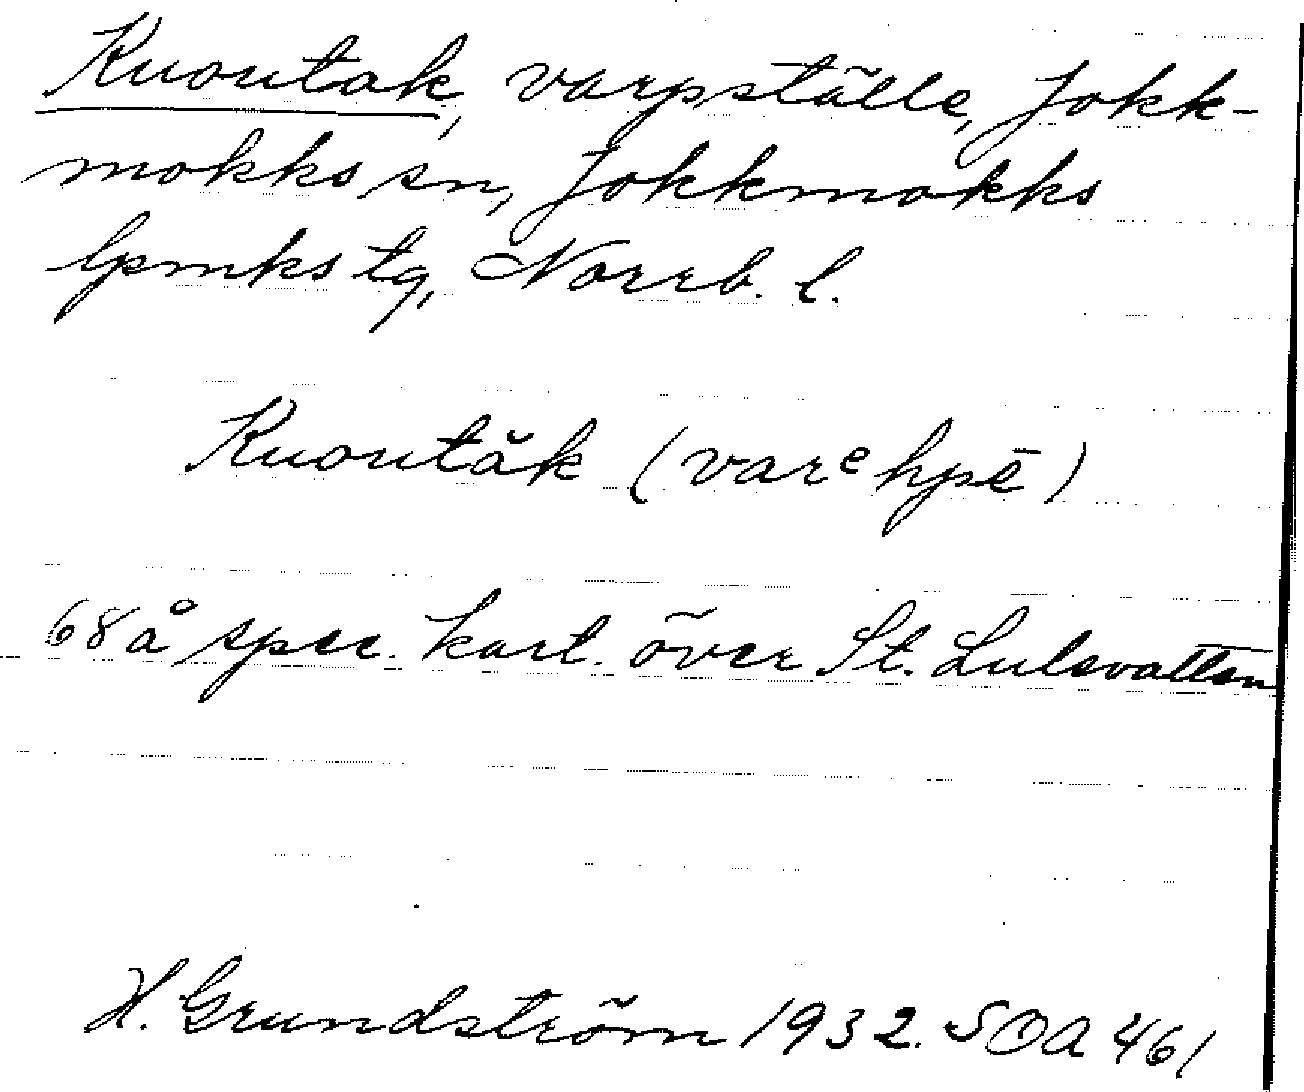 Kuoutak, varpställe, Jokk-
mokks sn, Jokkmokks
lpmks tg, Norrb. l.
Kuoutăk (varᵉhpē)
68 å spec. kart. över St. Lulevatten
H. Grundström 1932. SOA 461